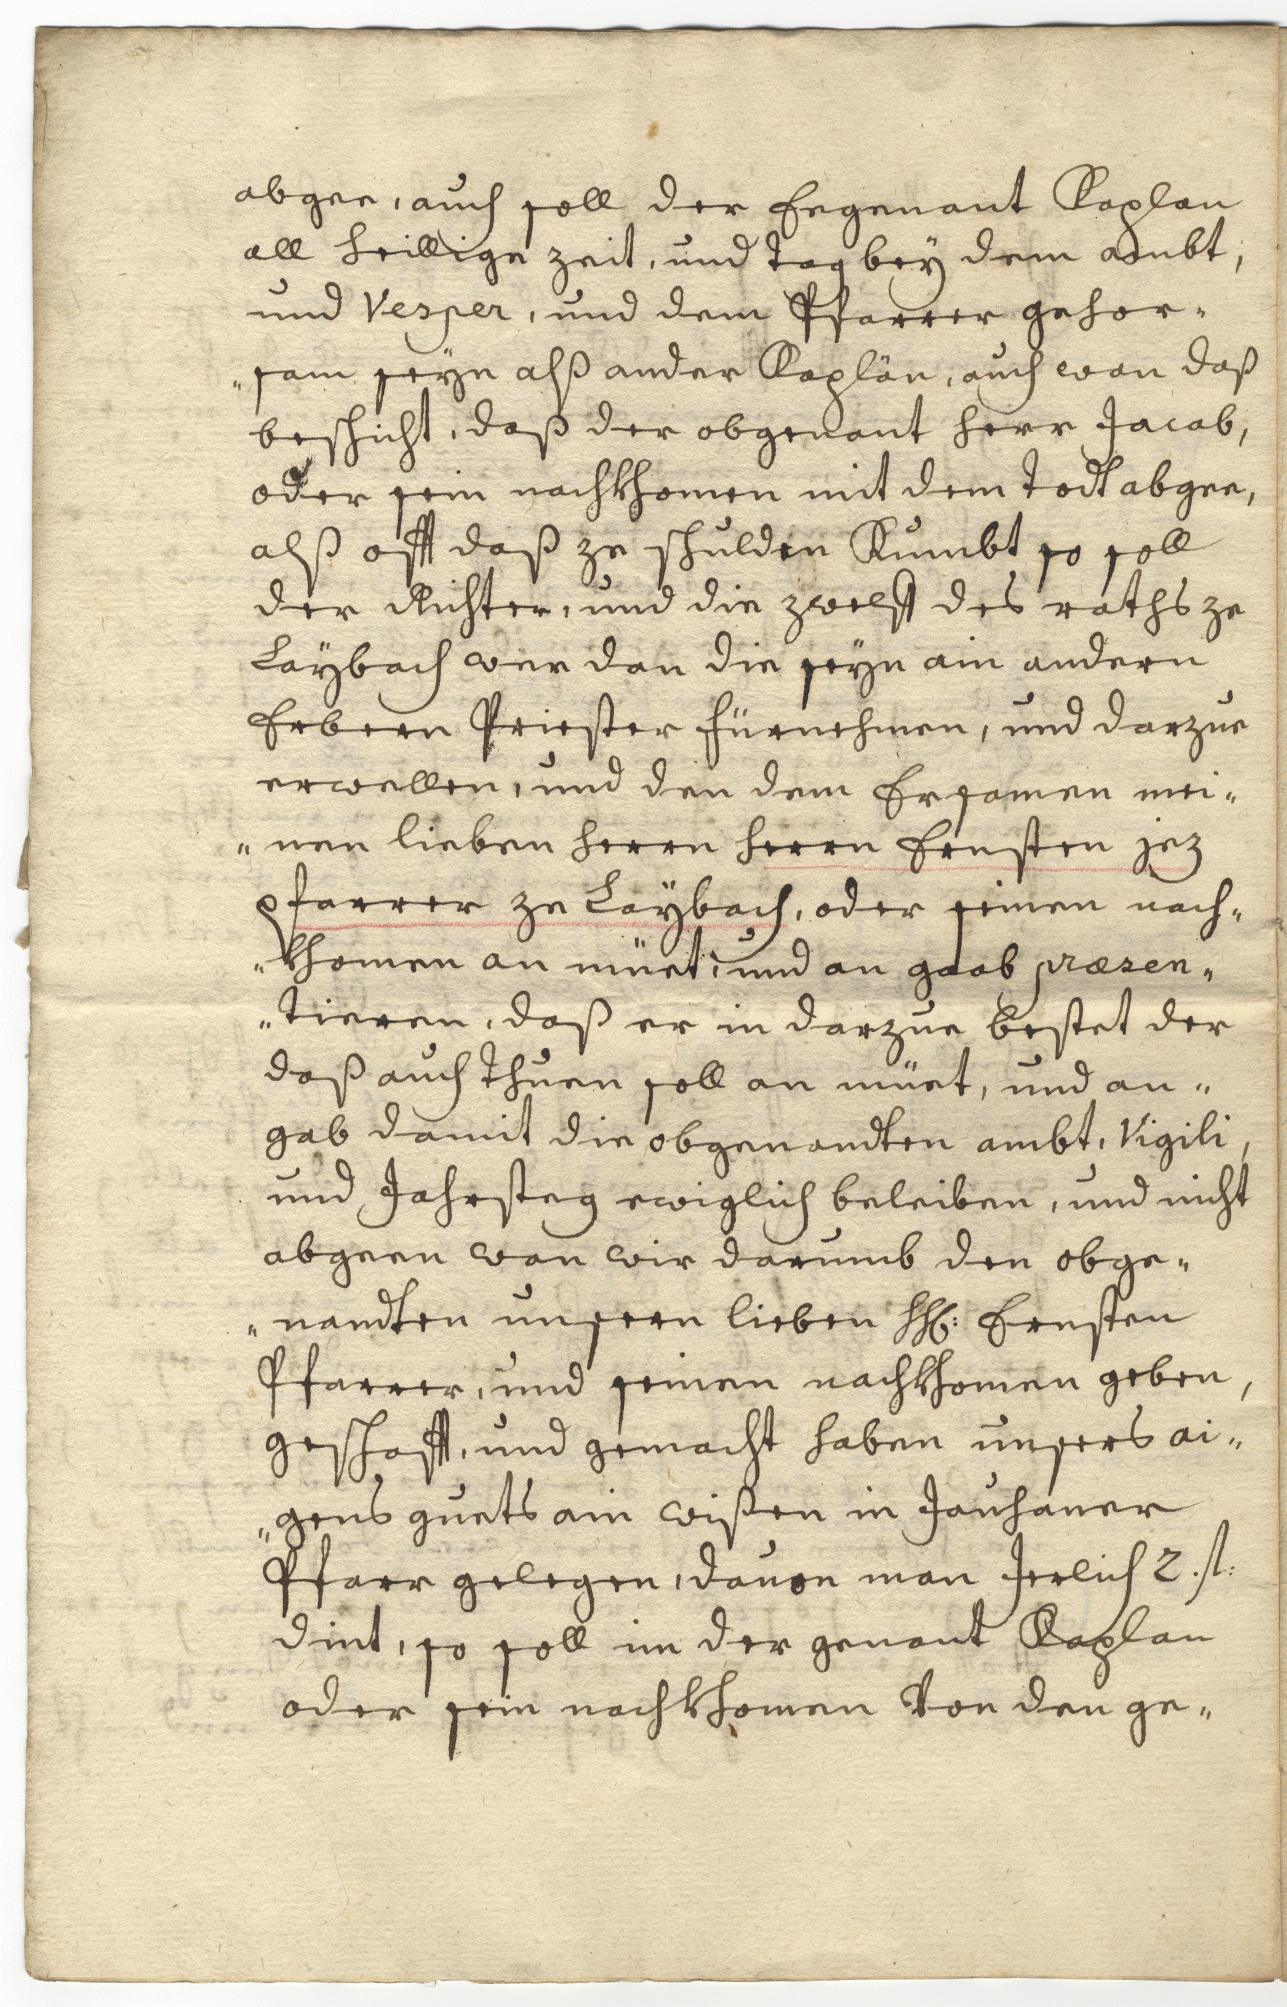 abgee, auch soll der Eegenant Kaplan
all heillige zeit, und tag bey dem ambt,
und Vesper, und dem Pfarrer gehor-
"sam seyn alß ander Kaplän, auch wan daß
beschicht, daß der obgenant herr Jacob,
oder sein nachkhomen mit dem Todt abgee,
alß offt daß ze schulden Kumbt so soll
der Richter, und die zwelff des raths ze
Laybach wer dan die seyn ain andern
Erbern Priester fürnehmen, und darzue
erwellen, und den dem Ersamen mei-
"nen lieben herrn herrn Ernsten jez
pfarrer ze Laybach, oder seinen nach-
"khomen an müet, und an gaab præsen-
"tieren, daß er in darzue bestet der
daß auch thuen soll an müet, und an-
gab damit die obgenandten ambt, Vigili,
und Jahrsteg ewiglich beleiben, und nicht
abgeen wan wir darumb den obge-
"nandten unsern lieben HE: Ernsten
Pfarrer, und seinen nachkhomen geben,
geschafft, und gemacht haben unsers ai-
"gens guets ain wißen in Jauhaner
Pfarr gelegen, dauon man Jerlich 2. fl:
dint, so soll im der genant Kaplan
oder sein nachkhomen Von den ge-